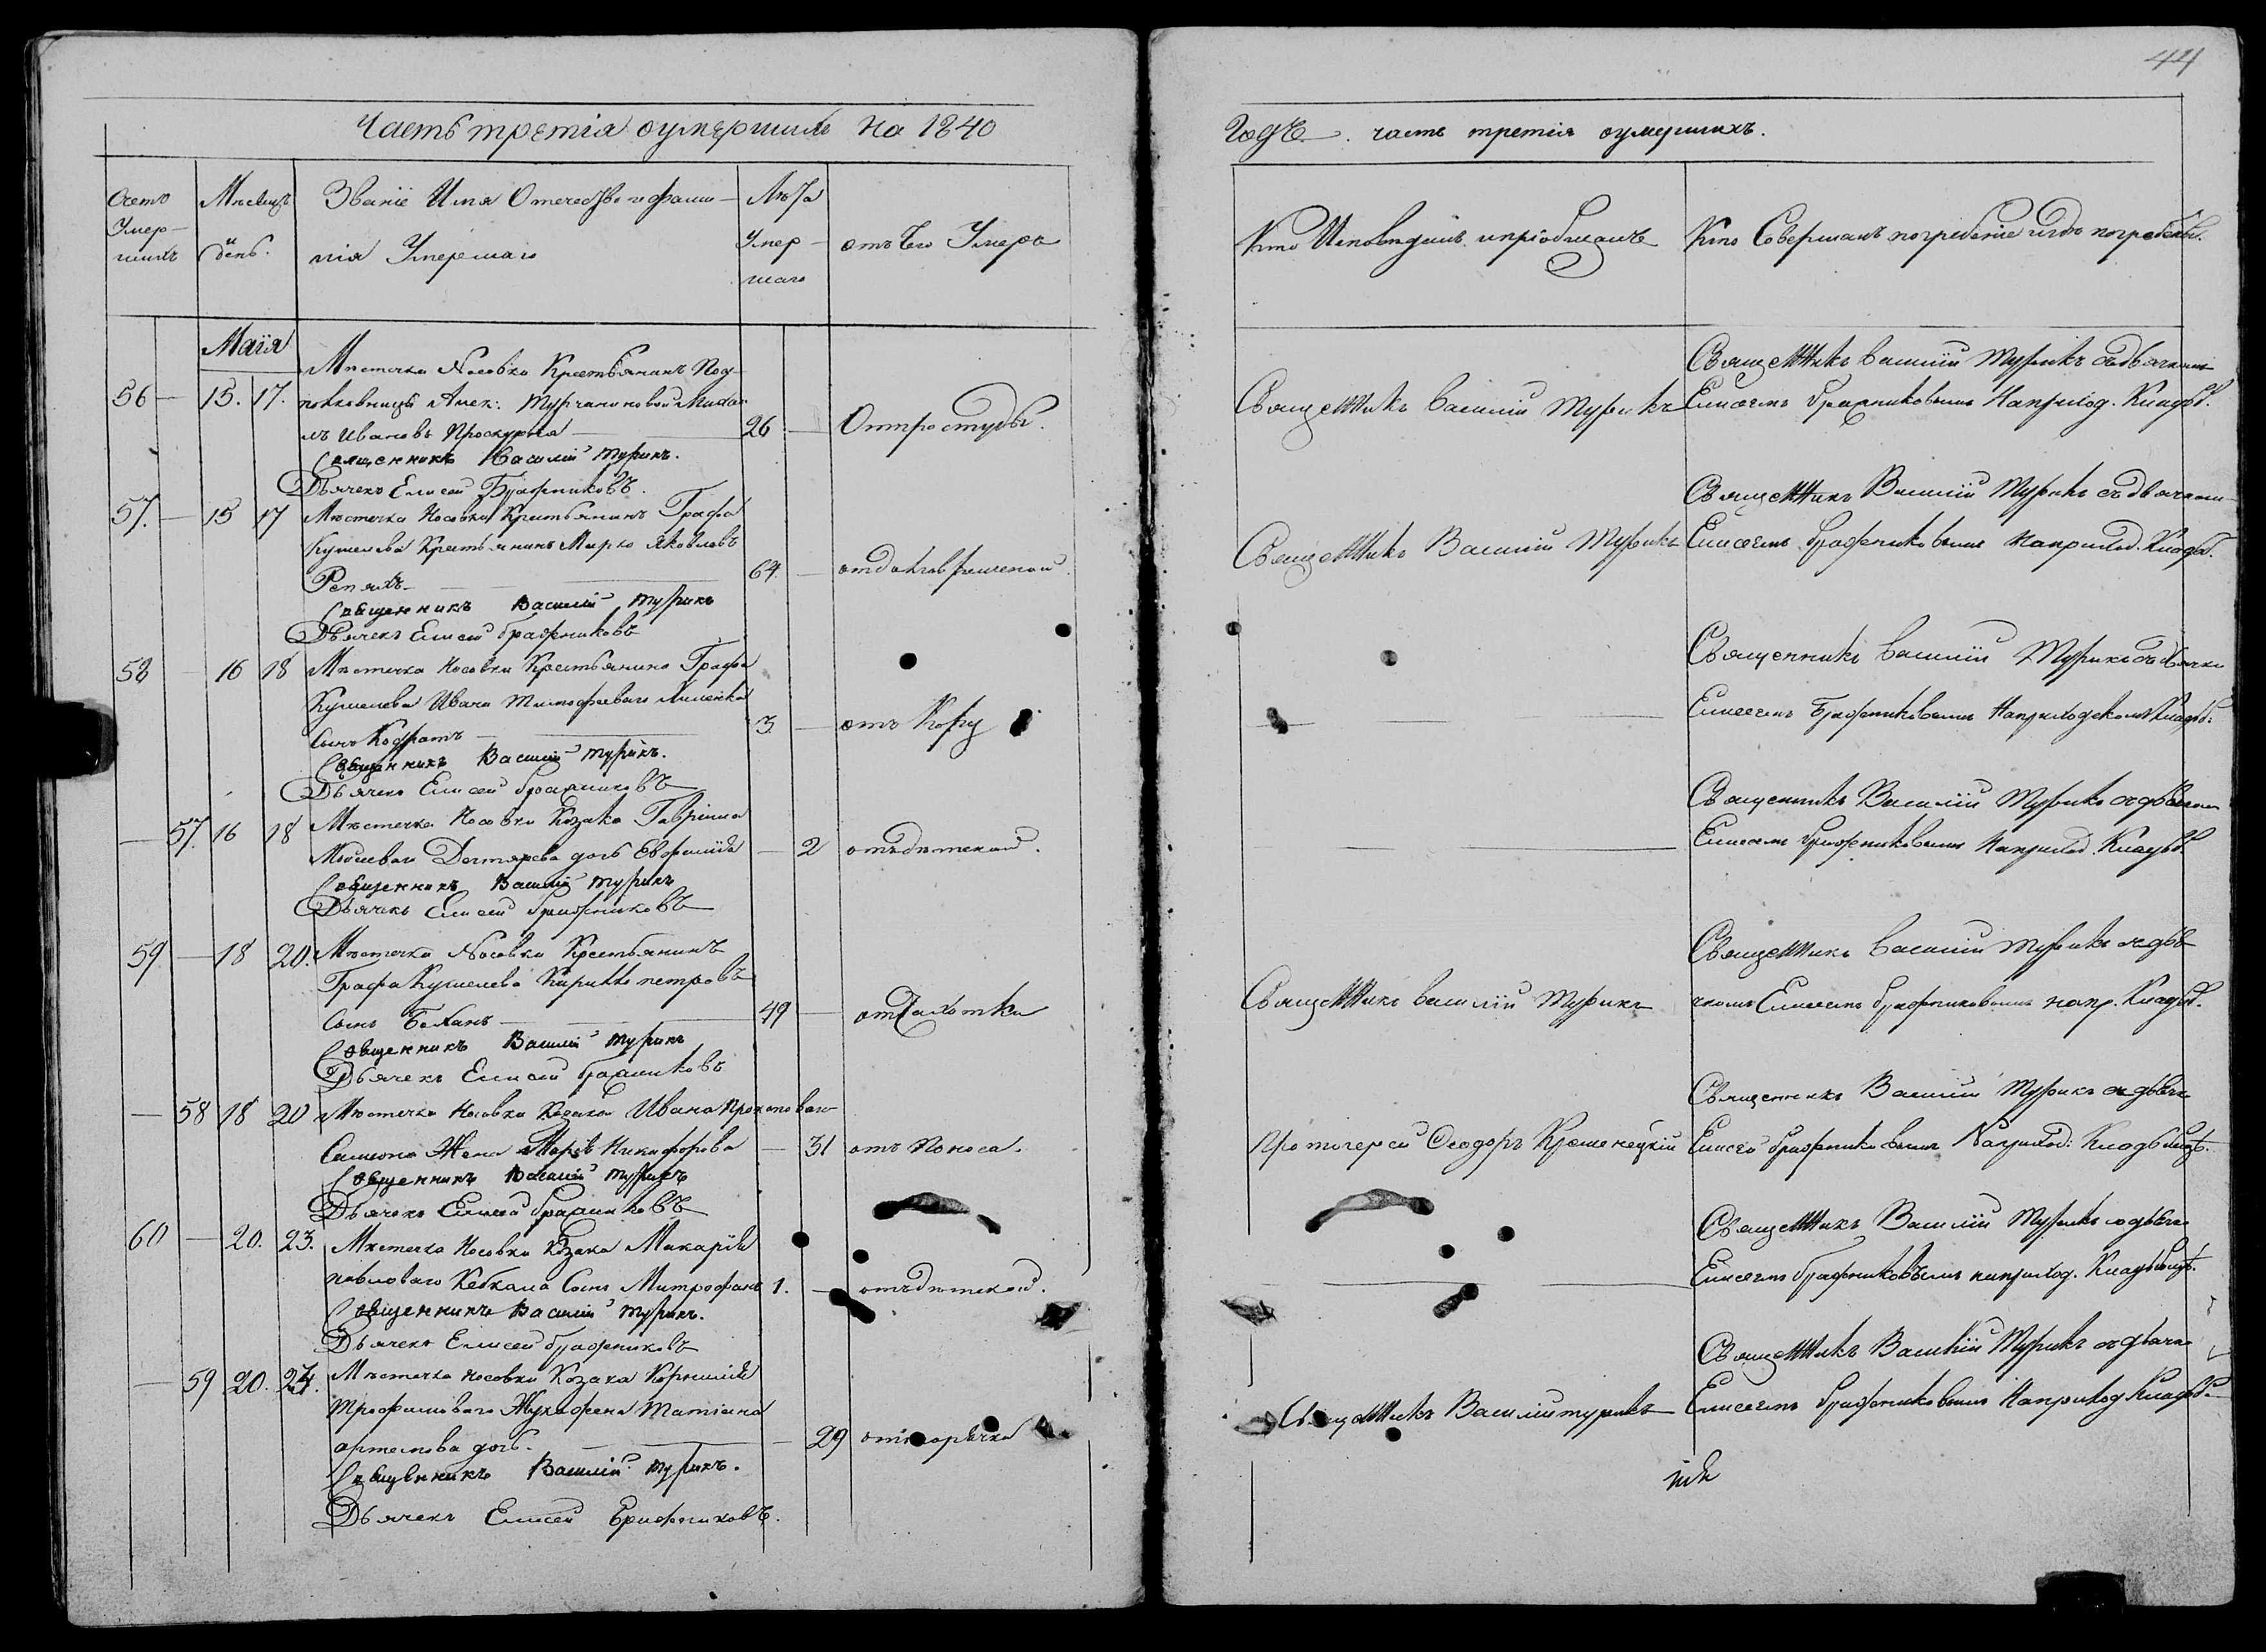 44
Часть третія оумершихъ на 1840
Счетъ Умер-шихъ
Мѣсяцъ и день.
Званіе Имя Отечество и фами-
лія Умершаго
Лѣта Умер-шаго
отъ Чего Умеръ
Маія
56 — 15. 17. Мѣстечка Носовки Крестьянинъ Под-
полковницы Алек: Турчаниновой Михаи
лъ Ивановъ Проскурня — 26 — Отпростуды.
Священникъ Василій Турикъ.
Дьячекъ Елисей Бражниковъ.
57. — 15 17 Мѣстечка Носовки Крестьянинъ Графа
Кушелева Крестьянинъ Марко Яковлевъ
Репяхъ — 64. —
Священникъ Василій Турикъ
Дьячекъ Елисей Бражниковъ
58 — 16 18 Мѣстечка Носовки Крестьянина Графа
Кушелева Ивана Тимофееваго
Сынъ Кодратъ — 3 — отъ Кору
Священникъ Василій Турикъ.
Дьячекъ Елисей Бражниковъ
— 57. 16 18 Мѣстечка Носовки Козака Гавріила
Дегтярева дочь Евфросинія — 2 отъ дѣтской.
Священникъ Василій Турикъ
Дьячекъ Елисей Бражниковъ
59 — 18 20. Мѣстечка Носовки Крестьянинъ
Графа Кушелева Кирилло петровъ
Сынъ — 49 — отъ Сахотки
Священникъ Василій Турикъ
Дьячекъ Елисей Бражниковъ
— 58 18 20 Мѣстечка Носовки Козака Ивана Прокоповаго
Жена Никифорова — 31 отъ Поноса.
Священникъ Василій Турикъ
Дьячекъ Елисей Бражниковъ
60 — 20. 23. Мѣстечка Носовки Козака Макарія
павловаго Кебкала Сынъ Митрофанъ 1. — отъ дѣтской.
Священникъ Василій Турикъ.
Дьячекъ Елисей Бражниковъ
— 59 20. 24. Мѣстечка Носовки Козака Корнилія
Трофимоваго Жена Татіана
артемова дочь. — 29 отъ горячки
Священникъ Василій Турикъ.
Дьячекъ Елисей Бражниковъ.
Годъ. часть третія оумершихъ.
Кто Исповѣдалъ и пріобщалъ
Кто Совершалъ погребеніе и гдѣ погребены.
Священникъ Василій Турикъ
Священникъ Василій Турикъ съ дьячкомъ
Елисеемъ Бражниковымъ На приход. Кладб.
Священникъ Василій Турикъ
Священникъ Василій Турикъ съ дьячкомъ
Елисеемъ Бражниковымъ на приход. Кладб.
Священникъ Василій Турикъ съ дьячко
Елисеемъ Бражниковымъ На приходскомъ Кладб:
Священникъ Василій Турикъ съ дьячком
Елисеем Бражниковымъ На приход. Кладб.
Священникъ Василій Турикъ
Священникъ Василій Турикъ съ дья
чкомъ Елисеемъ Бражниковымъ на пр. Кладб.
Протоіерей Феодоръ Кременецкій
Священникъ Василій Турикъ съ дьячк
Елисей Бражниковымъ На приход: Кладбищѣ.
Священникъ Василій Турикъ с дьячк
Елисеемъ Бражниковымъ на приход. Кладбищѣ.
Священникъ Василій турикъ
Священникъ Василій Турикъ съ дьячко
Елисеемъ Бражниковымъ На приход Кладб.